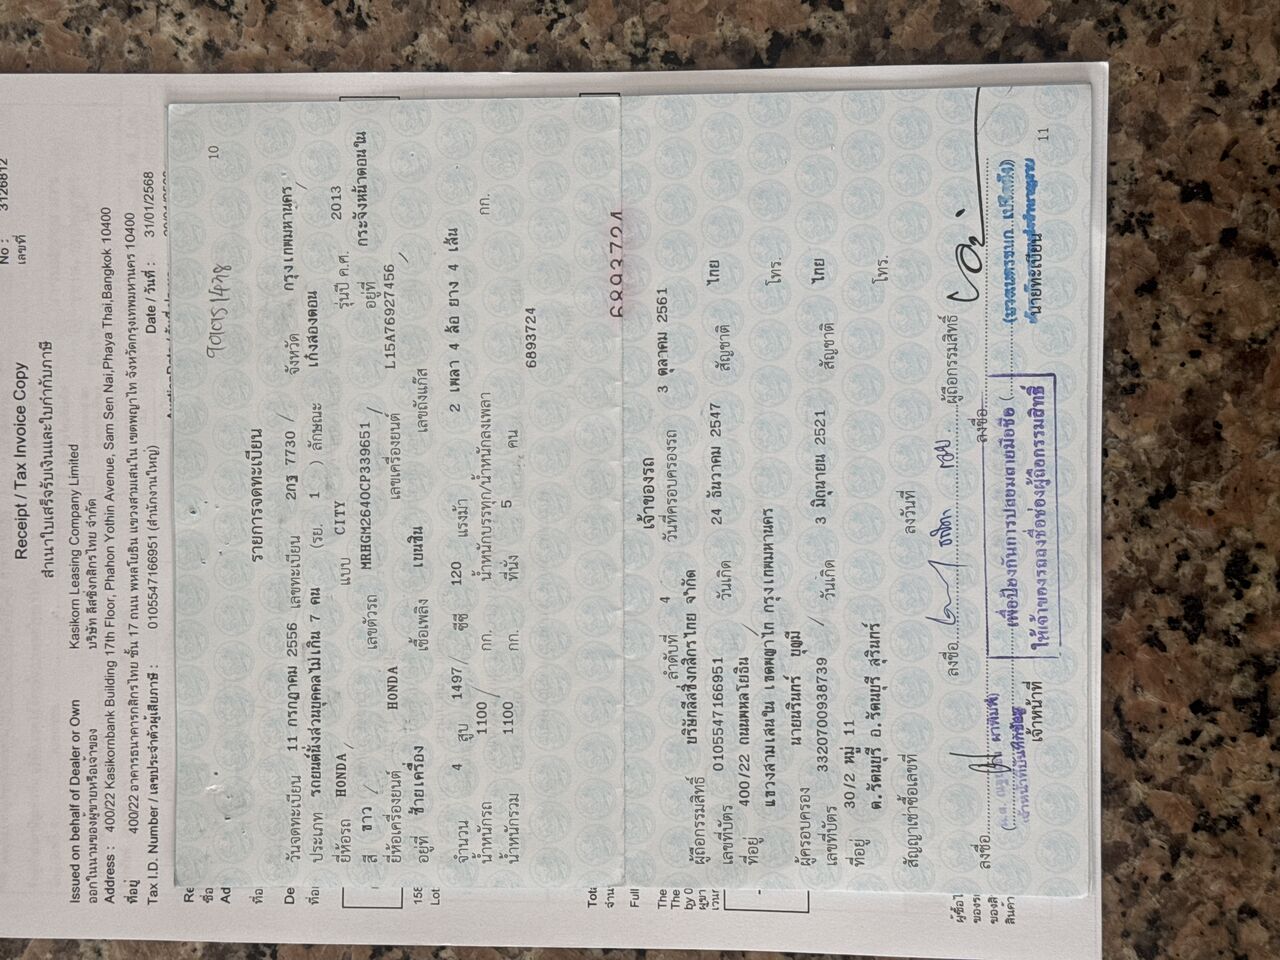 Receipt / Tax Invoice Copy
สำเนาใบเสร็จรับเงินและใบกำกับภาษี
No : 3126812
เลขที่
Issued on behalf of Dealer or Own Kasikorn Leasing Company Limited
ออกในนามของผู้ขายหรือเจ้าของ บริษัท ลีสซิ่งกสิกรไทย จำกัด
Address : 400/22 Kasikornbank Building 17th Floor, Phahon Yothin Avenue, Sam Sen Nai,Phaya Thai,Bangkok 10400
ที่อยู่ 400/22 อาคารธนาคารกสิกรไทย ชั้น 17 ถนน พหลโยธิน แขวงสามเสนใน เขตพญาไท จังหวัดกรุงเทพมหานคร 10400
Tax I.D. Number / เลขประจำตัวผู้เสียภาษี : 0105547166951 (สำนักงานใหญ่) Date / วันที่ : 31/01/2568
10
รายการจดทะเบียน
วันจดทะเบียน 11 กรกฎาคม 2556 เลขทะเบียน 2กฐ 7730 จังหวัด กรุงเทพมหานคร
ประเภท รถยนต์นั่งส่วนบุคคลไม่เกิน 7 คน (รย. 1 ) ลักษณะ เก๋งสองตอน
ยี่ห้อรถ HONDA แบบ CITY รุ่นปี ค.ศ. 2013
สี ขาว เลขตัวรถ MRHGM2640CP339651 อยู่ที่ กระจังหน้าตอนใน
ยี่ห้อเครื่องยนต์ HONDA เลขเครื่องยนต์ L15A76927456
อยู่ที่ ซ้ายเครื่อง เชื้อเพลิง เบนซิน เลขถังแก๊ส
จำนวน 4 สูบ 1497 ซีซี 120 แรงม้า 2 เพลา 4 ล้อ ยาง 4 เส้น
น้ำหนักรถ 1100 กก. น้ำหนักบรรทุก/น้ำหนักลงเพลา กก.
น้ำหนักรวม 1100 กก. ที่นั่ง 5 คน
6893724
6893724
เจ้าของรถ
ลำดับที่ 4 วันที่ครอบครองรถ 3 ตุลาคม 2561
ผู้ถือกรรมสิทธิ์ บริษัทลีสซิ่งกสิกรไทย จำกัด
เลขที่บัตร 0105547166951 วันเกิด 24 ธันวาคม 2547 สัญชาติ ไทย
ที่อยู่ 400/22 ถนนพหลโยธิน โทร.
แขวงสามเสนใน เขตพญาไท กรุงเทพมหานคร
ผู้ครอบครอง นายนรินทร์ บุญมี
เลขที่บัตร 3320700938739 วันเกิด 3 มิถุนายน 2521 สัญชาติ ไทย
ที่อยู่ 30/2 หมู่ 11 โทร.
ต.รัตนบุรี อ.รัตนบุรี สุรินทร์
สัญญาเช่าซื้อเลขที่ ลงวันที่
ลงชื่อ ผู้ถือกรรมสิทธิ์
ลงชื่อ ลงชื่อ
เจ้าหน้าที่ นายทะเบียน
เจ้าหน้าที่บันทึกข้อมูล
เพื่อป้องกันการปลอมลายมือชื่อ
ให้เจ้าของรถลงชื่อช่องผู้ถือกรรมสิทธิ์
11